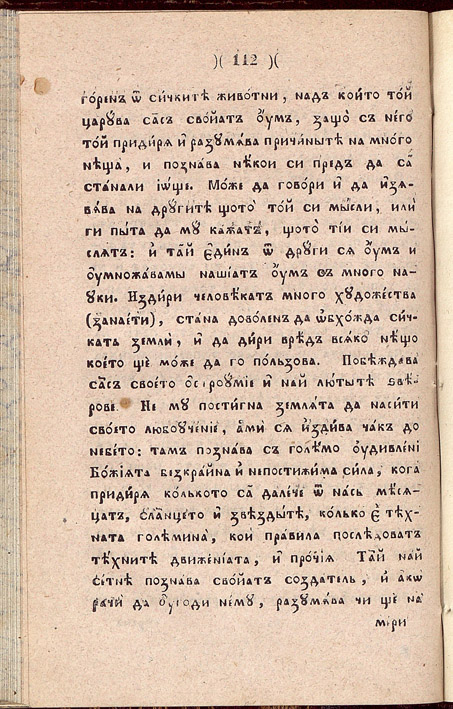 )( 112 )(
го́ренъ ѿ си́чкитѣ живо́тни, надъ кои́то то́й
царꙋ́ва са́съ сво́йатъ ᲂу҆́мъ, защо̀ съ не́го
то́й приди́ря и҆ разꙋмя́ва причи́нытѣ на мно́го
нѣ́ща, и познáва нѣ́кои си предъ да са̀
ста́нали і҆ѡ́ще. Мо́же да гово́ри и҆ да и҆зя-
вя́ва на дрꙋ́гитѣ щото̀ то́й си мы́сли, илѝ
ги пы́та да мꙋ ка́жатъ, щото̀ ті́и си мы́-
слятъ: и҆ та́й є҆ди́нъ ѿ дрꙋ́ги ся ᲂу҆́мъ и
ᲂу҆множа́вамы на́шіатъ ᲂу҆́мъ съ много на-
ꙋ́ки. Изди́ри человѣ́катъ много хꙋдо́жества
(занае́ти), ста́на дово́ленъ да ѡ҆бхо́жда си́ч-
ката земля̀, и҆ да ди́ри вре́дъ вся́ко нѣ́що
кое́то ще мо́же да го по́лзова. Побѣжда́ва
са́съ свое́то ѻ҆строꙋ́міе и҆ най лю́тытѣ ѕвѣ-
рове. Не мꙋ пости́гна земля́та да наси́ти
сво́ето любоꙋче́ніе, а҆мѝ ся и҆зди́ва ча́къ до
небе́то: тамъ позна́ва съ голѣ́мо ᲂу҆дивле́ні
Бо́жіята безкра́йна и҆ непостижи́ма си́ла, кога̀
приди́ря ко́лькото са̀ дале́че ѿ на́съ мѣ́ся-
цатъ, сла́нцето и҆ ѕвѣзды́тѣ, ко́лько є҆ тѣ́х-
ната големина̀, коѝ пра́вила послѣ́доватъ
тѣ́хните движе́ніата, и҆ про́чїя Та́й най
се́тнѣ позна́ва сво́йатъ созда́тель, и҆ а҆́кѡ
рачѝ да ᲂу҆го́ди не́мꙋ, разꙋмя́ва чи ще на
мѣ́ри